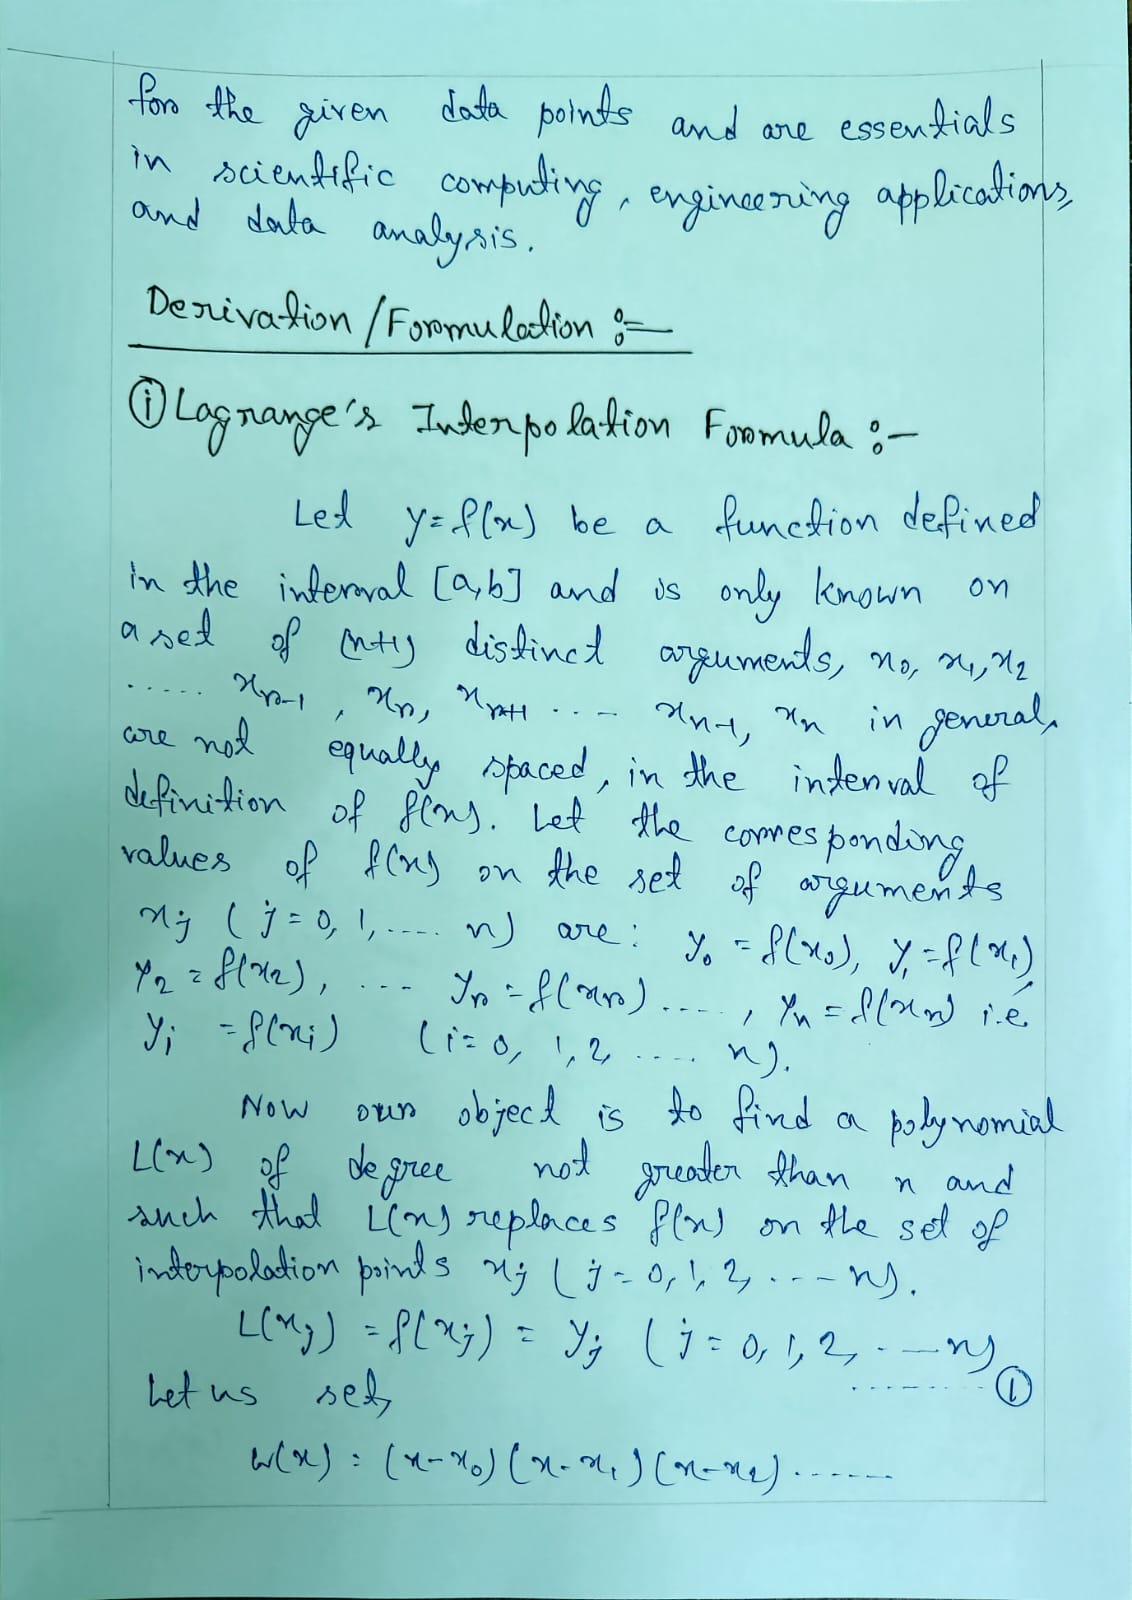 for the given data points and are essentials
in scientific computing, engineering applications,
and data analysis.
Derivation/Formulation :-
① Lagrange's Interpolation Formula :-
Let y=f(x) be a function defined
in the interval [a,b] and is only known on
a set of (n+1) distinct arguments, x₀, x₁, x₂
..... xᵣ₋₁, xᵣ, xᵣ₊₁ ... xₙ₋₁, xₙ in general,
are not equally spaced, in the interval of
definition of f(x). Let the corresponding
values of f(x) on the set of arguments
xⱼ (j=0, 1,.... n) are: y₀ = f(x₀), y₁=f(x₁)
y₂ = f(x₂), ... yᵣ = f(xᵣ)....., yₙ = f(xₙ) i.e.
yᵢ = f(xᵢ) (i=0, 1, 2, .... n).
Now our object is to find a polynomial
L(x) of degree not greater than n and
such that L(x) replaces f(x) on the set of
interpolation points xⱼ (j=0, 1, 2, ... n).
L(xⱼ) = f(xⱼ) = yⱼ (j=0, 1, 2, ... n)
Let us set, .......... ①
w(x) = (x-x₀)(x-x₁)(x-x₂).......